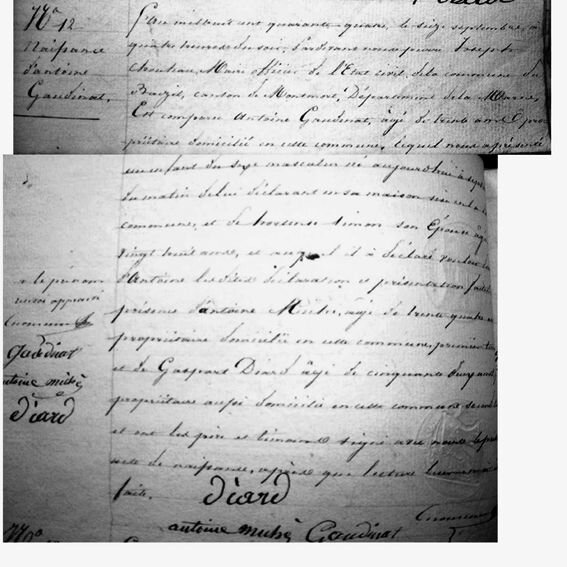 N° 12
Naissance
d'antoine
Gaudinat.
L'an mil huit cent quarante quatre, le seize septembre, à
quatre heures du soir, pardevant nous pierre Joseph
Maire officier de l'Etat civil, de la commune du
Baizil, canton de Montmort, Département de la Marne,
Est comparu antoine Gaudinat, âgé de trente ans, pro-
priétaire domicilié en cette commune, lequel nous a présenté
un enfant du sexe masculin né aujourd'hui à sept
du matin de lui déclarant en sa maison sise en la
commune, et de hortense simon son Epouse âgée
vingt huit ans, et auquel il à déclaré vouloir
d'Antoine les dites déclaration et présentation faites
présence d'antoine Miché, âgé de trente quatre ans
propriétaire domicilié en cette commune, premier
et de Gaspart Diard âgé de cinquante deux ans
propriétaire aussi domicilié en cette commune second
et ont les père et témoins signé avec nous le présent
acte de naissance, après que lecture leur en a
faite.
le prénom
approuvé
Gaudinat
antoine miché
diard
diard
antoine miché Gaudinat